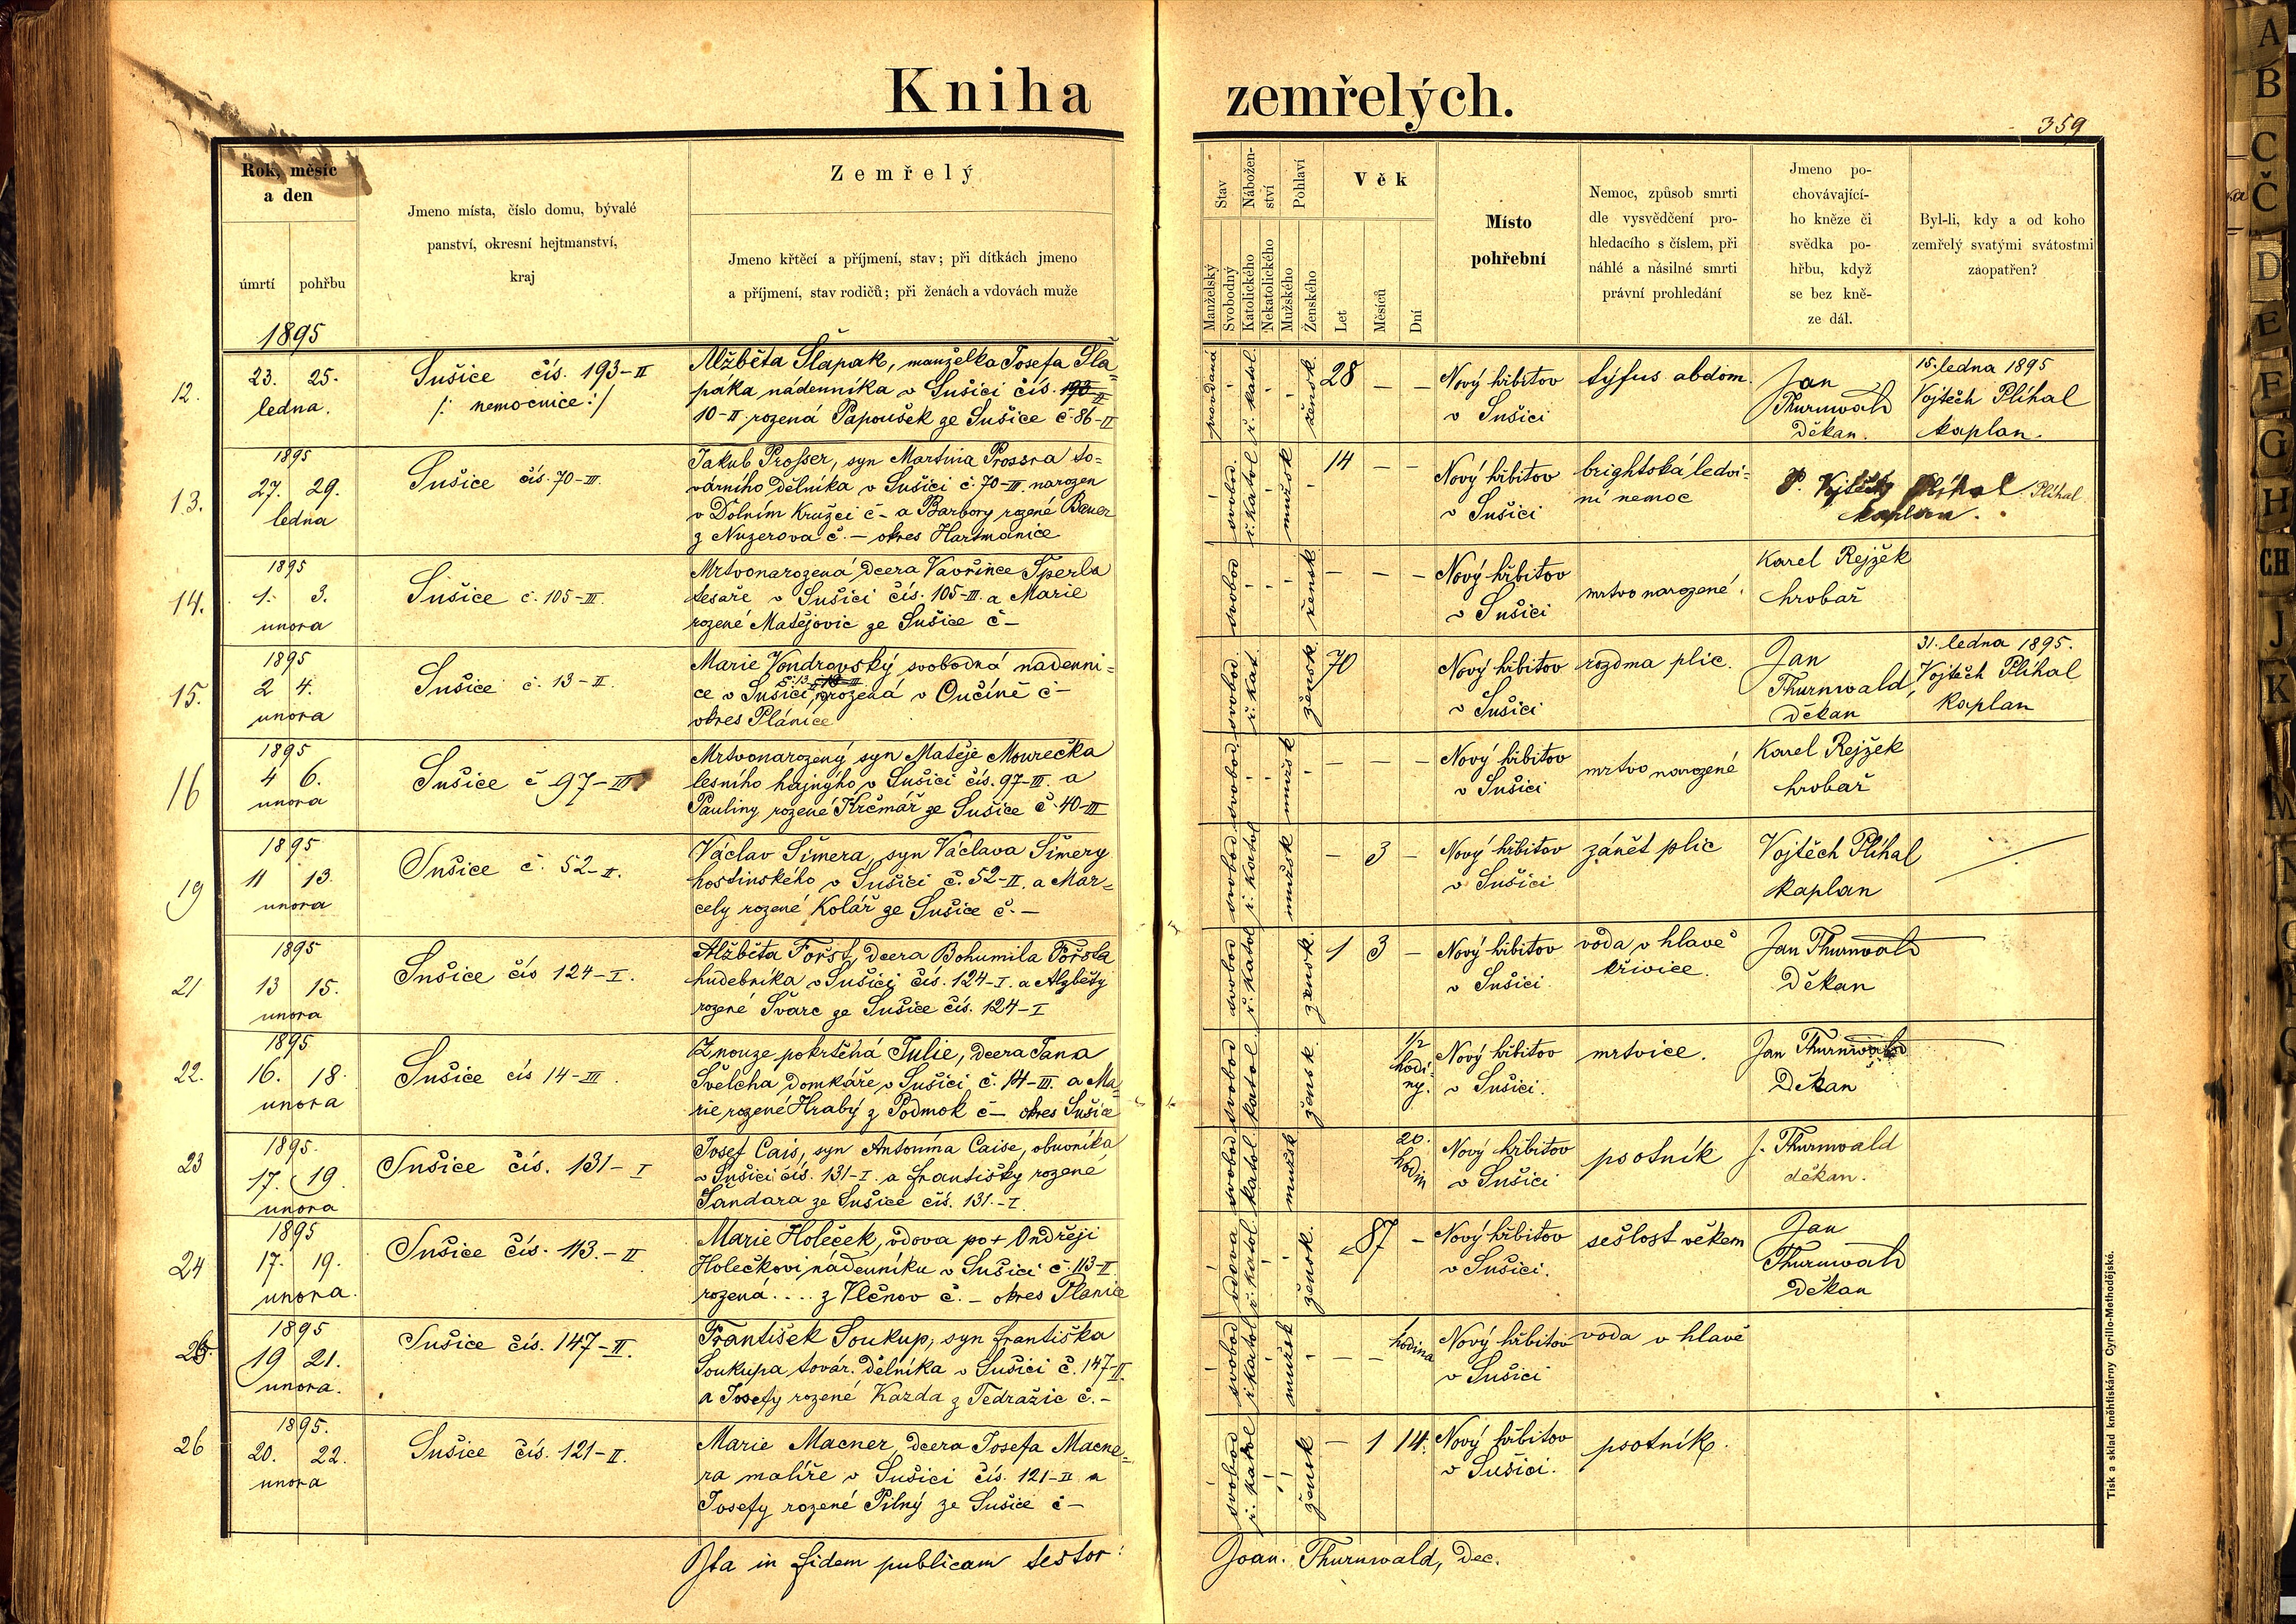 Kniha zemřelých.
359
Rok, měsíc
a den
úmrtí
pohřbu
Jmeno místa, číslo domu, bývalé
panství, okresní hejtmanství,
kraj
Zemřelý
Jmeno křtěcí a příjmení, stav; při dítkách jmeno
a příjmení, stav rodičů; při ženách a vdovách muže
Stav
Manželský
Svobodný
Nábožen-
ství
Katolického
Nekatolického
Pohlaví
Mužského
Ženského
Věk
Let
Měsíců
Dní
Místo
pohřební
Nemoc, způsob smrti
dle vysvědčení pro-
hledacího s číslem, při
náhlé a násilné smrti
právní prohledání
Jmeno po-
chovávající-
ho kněze či
svědka po-
hřbu, když
se bez kně-
ze dál.
Byl-li, kdy a od koho
zemřelý svatými svátostmi
zaopatřen?
1895
12.
23. 25.
ledna.
Sušice čís. 193-II
/: nemocnice :/
Alžběta Šlapak, manželka Josefa Šla=
páka nádenníka v Sušici čís. 193-II
10-II rozená Papoušek ze Sušice č. 86-II
provdaná
ř. katol.
žensk.
28 – –
Nový hřbitov
v Sušici
týfus abdom.
Jan
Thurnwald
Děkan.
15. ledna 1895
Vojtěch Plíhal
kaplan.
13.
1895
27. 29.
ledna
Sušice čís. 70-III.
Jakub Prosser, syn Martina Prossra to=
várního dělníka v Sušici č. 70-III. narozen
v Dolním Kružci č – a Barbory rozené Bauer
z Nuzerova č. – okres Hartmanice
svobod.
ř. katol
mužsk
14 – –
Nový hřbitov
v Sušici
brightská ledvi-
ní nemoc
P. Vojtěch Plíhal. Plíhal
kaplan.
14.
1895
1. 3.
unora
Sušice č. 105-III.
Mrtvonarozená dcera Vavřince Šperla
tesaře v Sušici čís. 105-III. a Marie
rozené Matějovic ze Sušice č –
svobod
žensk
– – –
Nový hřbitov
v Sušici
mrtvo narozené.
Karel Rejžek
hrobař
15.
1895
2 4.
unora
Sušice č. 13-II.
Marie Vondrovský svobodná nadenni=
č. 13-II 13-III
ce v Sušici, rozená v Oučíně č –
okres Plánice
svobod.
ř. kat.
žensk.
70
Nový hřbitov
v Sušici
rozdma plic.
Jan
Thurnwald,
děkan
31. ledna 1895.
Vojtěch Plíhal
kaplan
16
1895
4 6.
unora
Sušice č 97-III
Mrtvonarozený syn Matěje Mourečka
lesního hajnýho v Sušici čís. 97-III. a
Pauliny rozené Krčmář ze Sušice č. 40-III
svobod
mužsk
– – –
Nový hřbitov
v Sušici
mrtvo narozené
Karel Rejžek
hrobař
19
1895
11 13.
unora
Sušice č. 52-II.
Václav Šimera, syn Václava Šimery
hostinského v Sušici č. 52-II. a Mar=
cely rozené Kolář ze Sušice č. –
svobod
ř. katol
mužsk
– 3 –
Nový hřbitov
v Sušici
zánět plic
Vojtěch Plíhal
kaplan
21
1895
13 15.
unora
Sušice čís 124-I.
Alžběta Foršt, dcera Bohumila Foršta
hudebníka v Sušici čís. 124-I. a Alžběty
rozené Švarc ze Sušice čís. 124-I
svobod
ř. katol
žensk.
1 3 –
Nový hřbitov
v Sušici
voda v hlavě
křivice.
Jan Thurnwald
Děkan
22.
1895
16. 18.
unora
Sušice čís 14-III.
Z nouze pokrtěná Julie, dcera Jana
Švelcha domkáře v Sušici č. 14-III. a Ma
rie rozené Hrabý z Podmok č – okres Sušice
svobod
katol.
žensk.
1/2
hodi
ny.
Nový hřbitov
v Sušici.
mrtvice.
Jan Thurnwald
Děkan
23
1895.
17. 19.
unora
Sušice čís. 131-I
Josef Cais, syn Antonína Caise, obuvníka
v Sušici čís. 131-I. a Františky rozené
Šandara ze Sušice čís. 131.-I.
svobod
katol
mužsk
20.
hodin
Nový hřbitov
v Sušici
psotník
J. Thurnwald
děkan.
24
1895
17. 19.
unora.
Sušice čís. 113.-II
Marie Holeček, vdova po + Ondřeji
Holečkovi nádenníku v Sušici č. 113-II
rozená .... z Vlčnov č. – okres Planice
vdova
ř. katol.
žensk.
87 –
Nový hřbitov
v Sušici.
sešlost věkem
Jan
Thurnwald
Děkan
25.
1895
19 21.
unora.
Sušice čís. 147-II.
František Soukup, syn Františka
Soukupa továr. dělníka v Sušici č. 147-II.
a Josefy rozené Kazda z Tedražic č. –
svobod
ř. katol
mužsk
– –
1
hodina
Nový hřbitov
v Sušici
voda v hlavě
26
1895.
20. 22.
unora
Sušice čís. 121-II.
Marie Macner, dcera Josefa Macne=
ra malíře v Sušici čís. 121-II a
Josefy rozené Pilný ze Sušice č –
svobod
ř. katol
žensk
– 1 14.
Nový hřbitov
v Sušici.
psotník.
Ita in fidem publicam testor: Joan. Thurnwald, Dec.
Tisk a sklad kněhtiskárny Cyrillo-Methodějské.
A
B
C
Č
D
E
F
G
H
CH
J
K
M
N